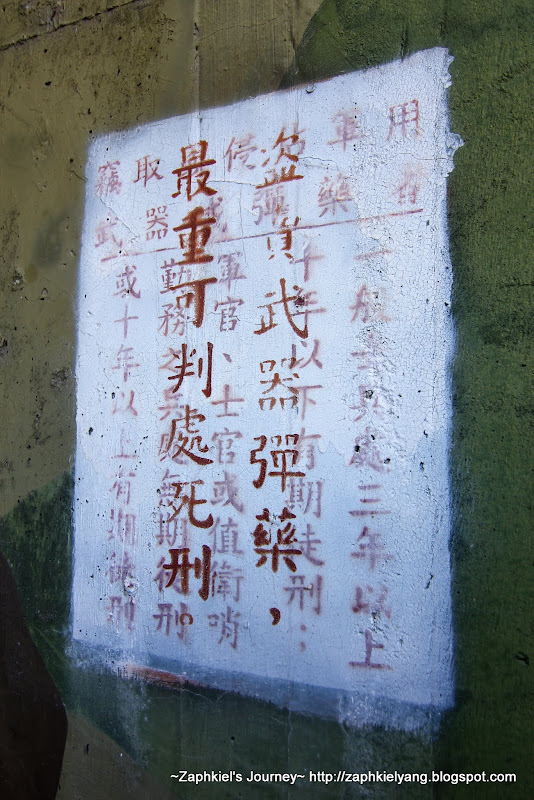 盜賣武器彈藥，
最重可判處死刑。
竊取侵軍用
武器或彈藥者
一般士兵處三年以上
十年以下有期徒刑；
軍官、士官或值衛哨
勤務之兵處無期徒刑
或十年以上有期徒刑
~Zaphkiel's Journey~ http://zaphkielyang.blogspot.com/